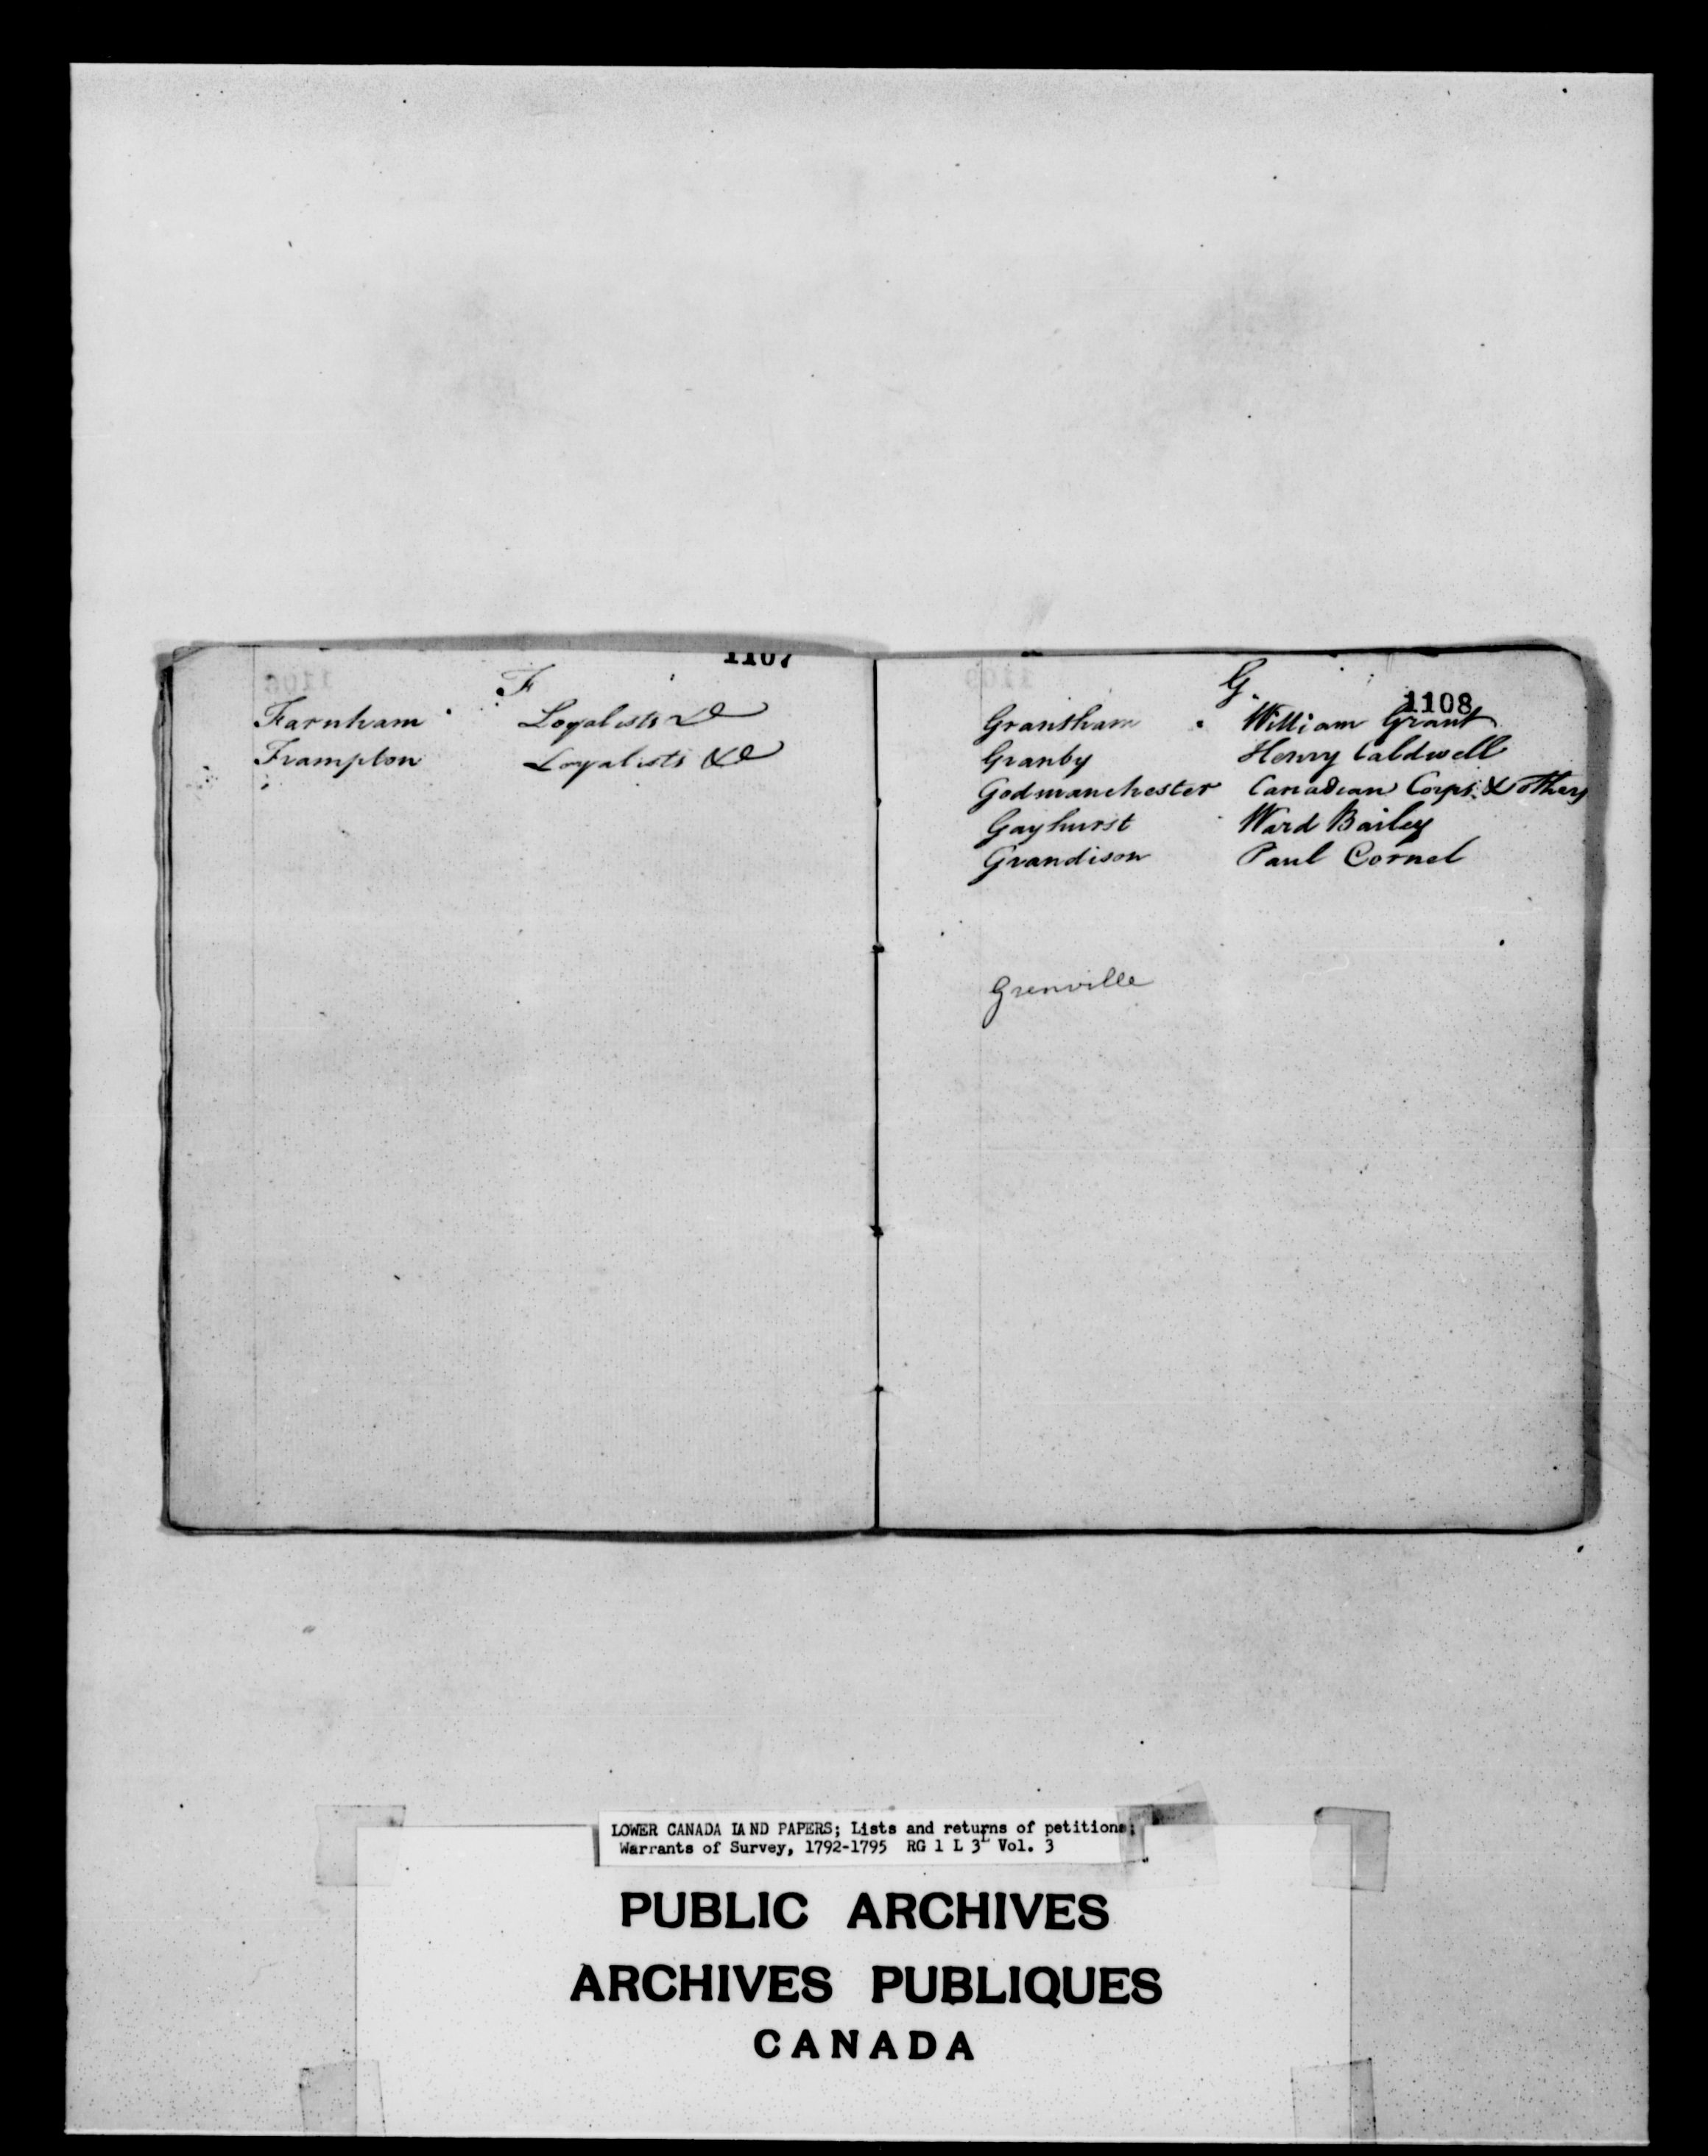 1107
F
Farnham Loyalists &c
Frampton Loyalists &c
1108
G.
Grantham William Grant
Granby Henry Caldwell
Godmanchester Canadian Corps & others
Gayhurst Ward Bailey
Grandison Paul Cornel
Grenville
LOWER CANADA LAND PAPERS; Lists and returns of petitions;
Warrants of Survey, 1792-1795 RG 1 L 3L Vol. 3
PUBLIC ARCHIVES
ARCHIVES PUBLIQUES
CANADA